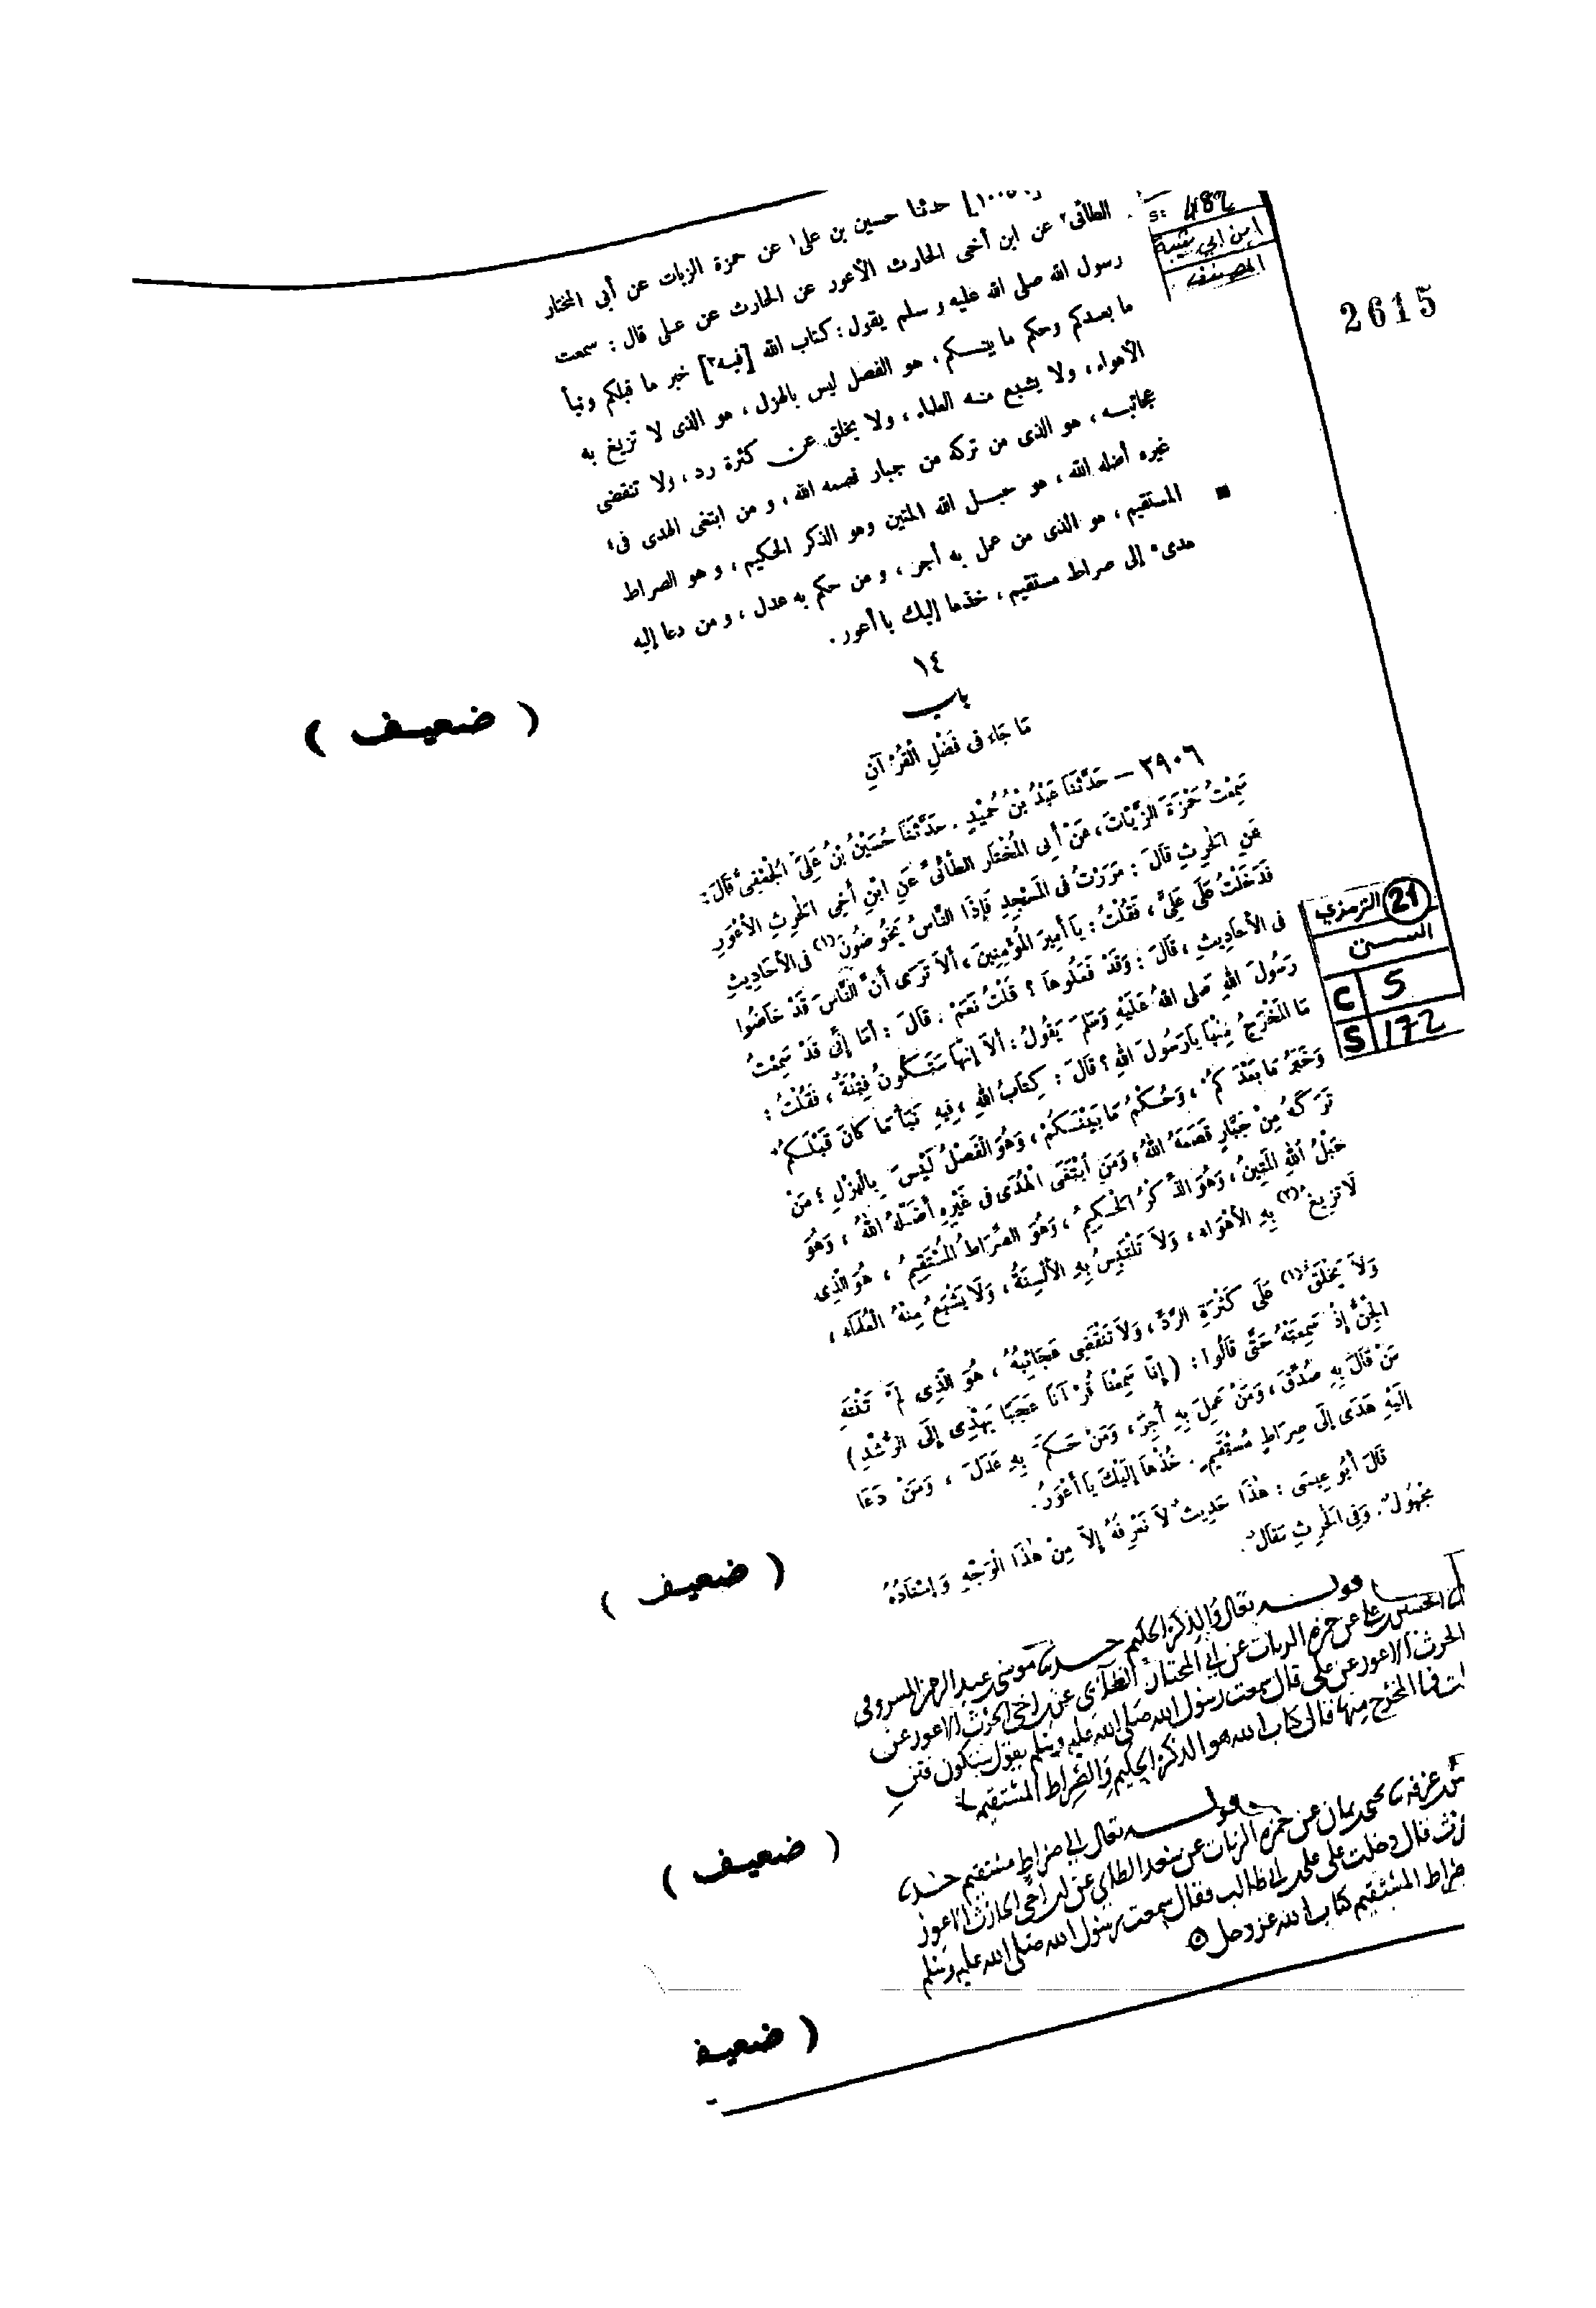 s: 482
ابن ابي شيبة
المصنف
2615
حدثنا حسين بن على١ عن حمزة الزيات عن أبى المختار
الطائى٢ عن ابن أخى الحارث الأعور عن الحارث عن على قال : سمعت
رسول الله صلى الله عليه و سلم يقول : كتاب الله [فيه٣] خبر ما قبلكم ونبأ
ما بعدكم وحكم ما بينكم ، هو الفصل ليس بالهزل ، هو الذى لا تزيغ به
الأهواء ، ولا يشبع منه العلماء ، ولا يخلق عن كثرة رد ، ولا تنقضى
عجائبه ، هو الذى من تركه من جبار قصمه الله ، و من ابتغى الهدى فى٤
غيره أضله الله ، هو حبل الله المتين وهو الذكر الحكيم ، و هو الصراط
المستقيم ، هو الذى من عمل به أجر ، و من حكم به عدل ، و من دعا إليه
هدى٥ إلى صراط مستقيم ، خذها إليك يا أعور .
( ضعيف )
١٤
باب
مَا جَاءَ فى فَضْلِ الْقُرْآنِ
٢٩٠٦ – حَدَّثَنَا عَبْدُ بْنُ حُمَيْدٍ . حَدَّثَنَا حُسَيْنُ بْنُ عَلِىٍّ الْجُعْفِىُّ قَالَ :
سَمِعْتُ حَمْزَةَ الزَّيَّاتَ ، عَنْ أَبِى الْمُخْتَارِ الطَّائِىِّ عَنِ ابْنِ أَخِى الْحٰرِثِ الْأَعْوَرِ
عَنِ الْحٰرِثِ قَالَ : مَرَرْتُ فى الْمَسْجِدِ فَإِذَا النَّاسُ يَخُوضُونَ(١) فى الْأَحَادِيثِ
فَدَخَلْتُ عَلَى عَلِىٍّ ، فَقُلْتُ : يَا أَمِيرَ الْمُؤْمِنِينَ ، أَلاَ تَرَى أَنَّ النَّاسَ قَدْ خَاضُوا
فى الْأَحَادِيثِ ، قَالَ : وَقَدْ فَعَلُوهَا ؟ قُلْتُ نَعَمْ . قَالَ : أَمَا إِنِّى قَدْ سَمِعْتُ
رَسُولَ اللهِ صَلى اللهُ عَلَيْهِ وَسَلمَ يَقُولُ : أَلاَ إِنَّهَا سَتَكُونُ فِتْنَةٌ ، فَقُلْتُ :
مَا الْمَخْرَجُ مِنْهَا يَارَسُولَ اللهِ ؟ قَالَ : كِتَابُ اللهِ ، فِيهِ نَبَأُ مَا كانَ قَبْلَكُمْ
وَخَبَرُ مَا بَعْدَكُمْ ، وَحُكْمُ مَا بَيْنَكُمْ ، وَهُوَ الْفَصْلُ لَيْسَ بِالْهَزْلِ ، مَنْ
تَرَكَهُ مِنْ جَبَّارٍ قَصَمَهُ اللهُ ، وَمَنِ ابْتَغَى الْهُدَى فى غَيْرِهِ أَضَلَّهُ اللهُ ، وَهُوَ
حَبْلُ اللهِ الْمَتِينُ ، وَهُوَ الذِّكْرُ الْحَكِيمُ ، وَهُوَ الصِّرَاطُ الْمُسْتَقِيمُ ، هُوَ الَّذِى
لاَ تَزِيغُ(٢) بِهِ الْأَهْوَاء ، وَلاَ تَلْتَبِسُ بِهِ الْأَلْسِنَةُ ، وَلاَ يَشْبَعُ مِنْهُ الْعُلَمَاء ،
وَلاَ يَخْلَقُ(١) عَلَى كَثْرَةِ الرَّدِّ ، وَلاَ تَنْقَضِى عَجَائِبُهُ ، هُوَ الَّذِى لَمْ تَنْتَهِ
الْجِنُّ إِذْ سَمِعَتْهُ حَتَّى قَالُوا : ( إِنَّا سَمِعْنَا قُرْآنًا عَجَبًا يَهْدِى إِلَى الرُّشْدِ )
مَنْ قَالَ بِهِ صَدَقَ ، وَمَنْ عَمِلَ بِهِ أُجِرَ ، وَمَنْ حَكَمَ بِهِ عَدَلَ ، وَمَنْ دَعَا
إِلَيْهِ هَدَى إِلَى صِرَاطٍ مُسْتَقِيمٍ . خُذْهَا إِلَيْكَ يَا أَعْوَرُ .
قَالَ أَبُو عِيسَى : هٰذَا حَدِيثٌ لاَ نَعْرِفُهُ إِلاَّ مِنْ هٰذَا الْوَجْهِ وَإِسْنَادُهُ
مَجْهُولٌ . وَفِى الْحٰرِثِ مَقَالٌ .
21 الترمذي
السنن
C 5
S 172
( ضعيف )
قوله تعالى وَالذِكرُ الحكيم حدثنا موسى بن عبد الرحمن المسروقى
الحسين بن على عن حمزه الزيات عن ابى المختار الطائى عن ابن اخى الحرث الاعور عن
الحرث الاعور عن على قال سمعت رسول الله صلى الله عليه وسلم يقول ستكون فتن
فما المخرج منها قال كتاب الله هو الذكر الحكيم والصراط المستقيم
( ضعيف )
قوله تعالى الى صراط مستقيم حدثنا
بن عرفه يحيى بن يمان عن حمزه الزيات عن سعد الطائى عن ابن اخى الحارث الاعور
قال دخلت على على بن ابى طالب فقال سمعت رسول الله صلى الله عليه وسلم
المستقيم كتاب الله عز وجل
( ضعيف